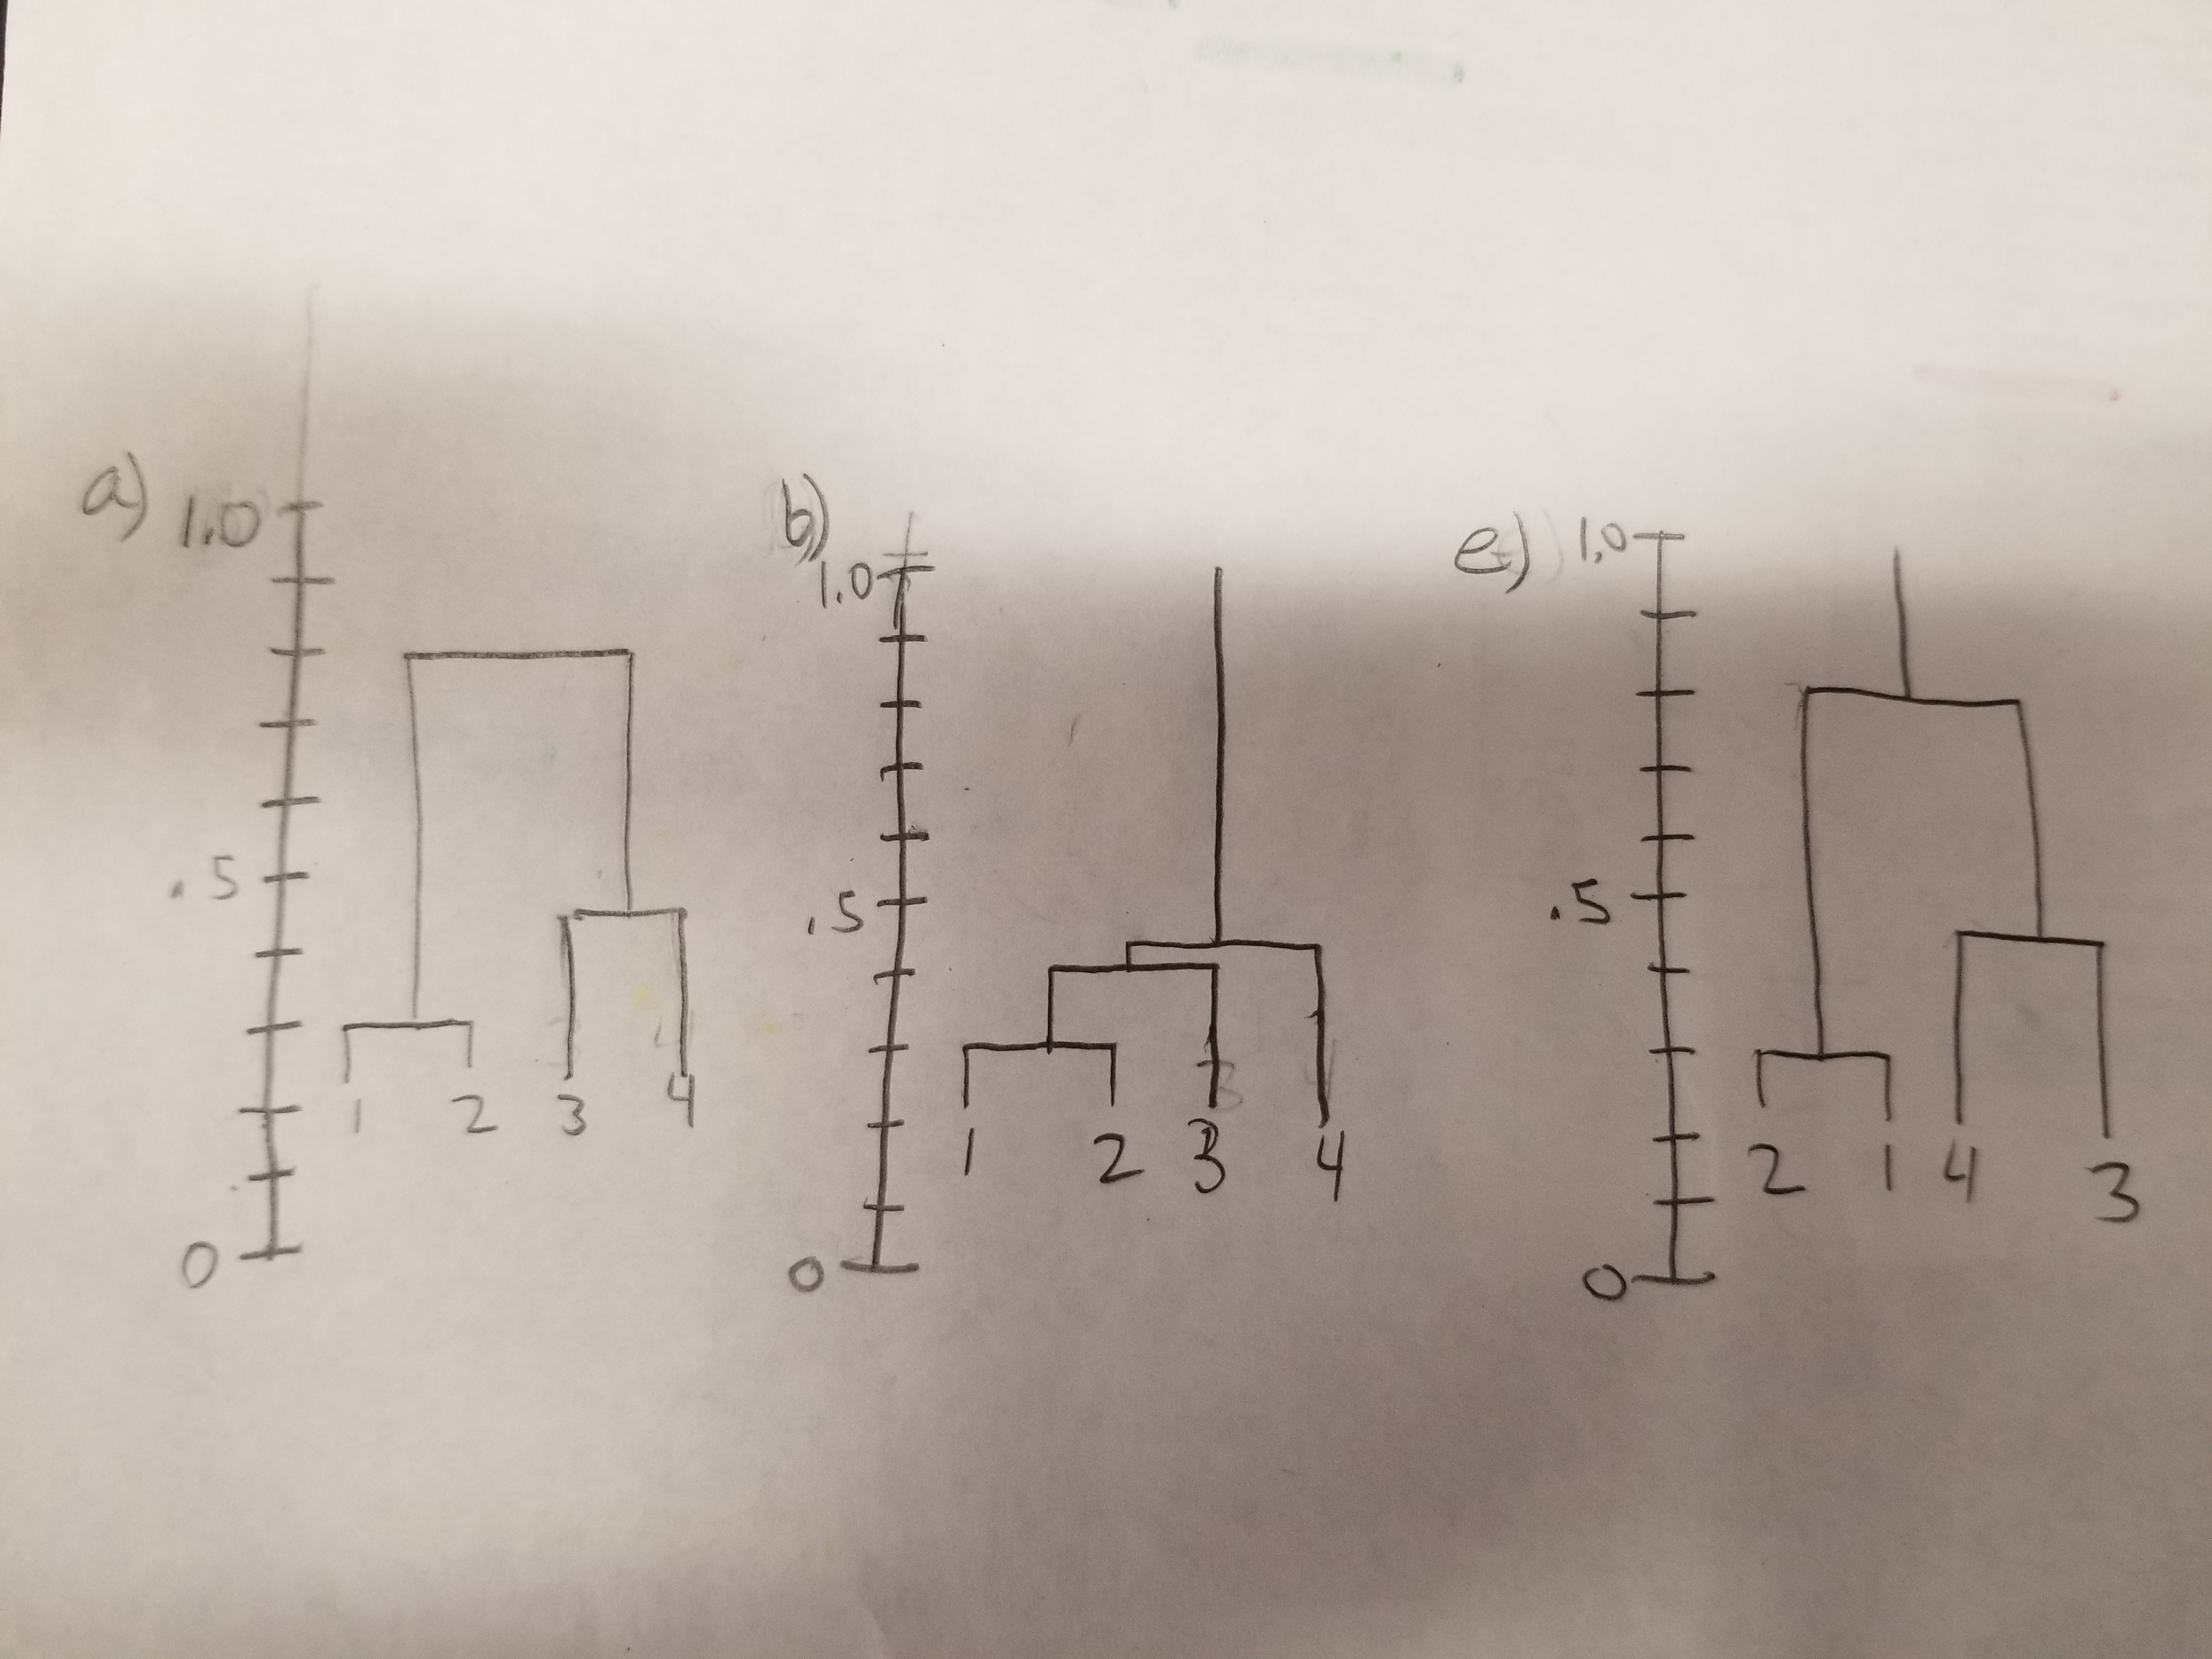 a) 1.0
.5
0
1 2 3 4
b) 1.0
.5
0
1 2 3 4
e) 1.0
.5
0
2 1 4 3